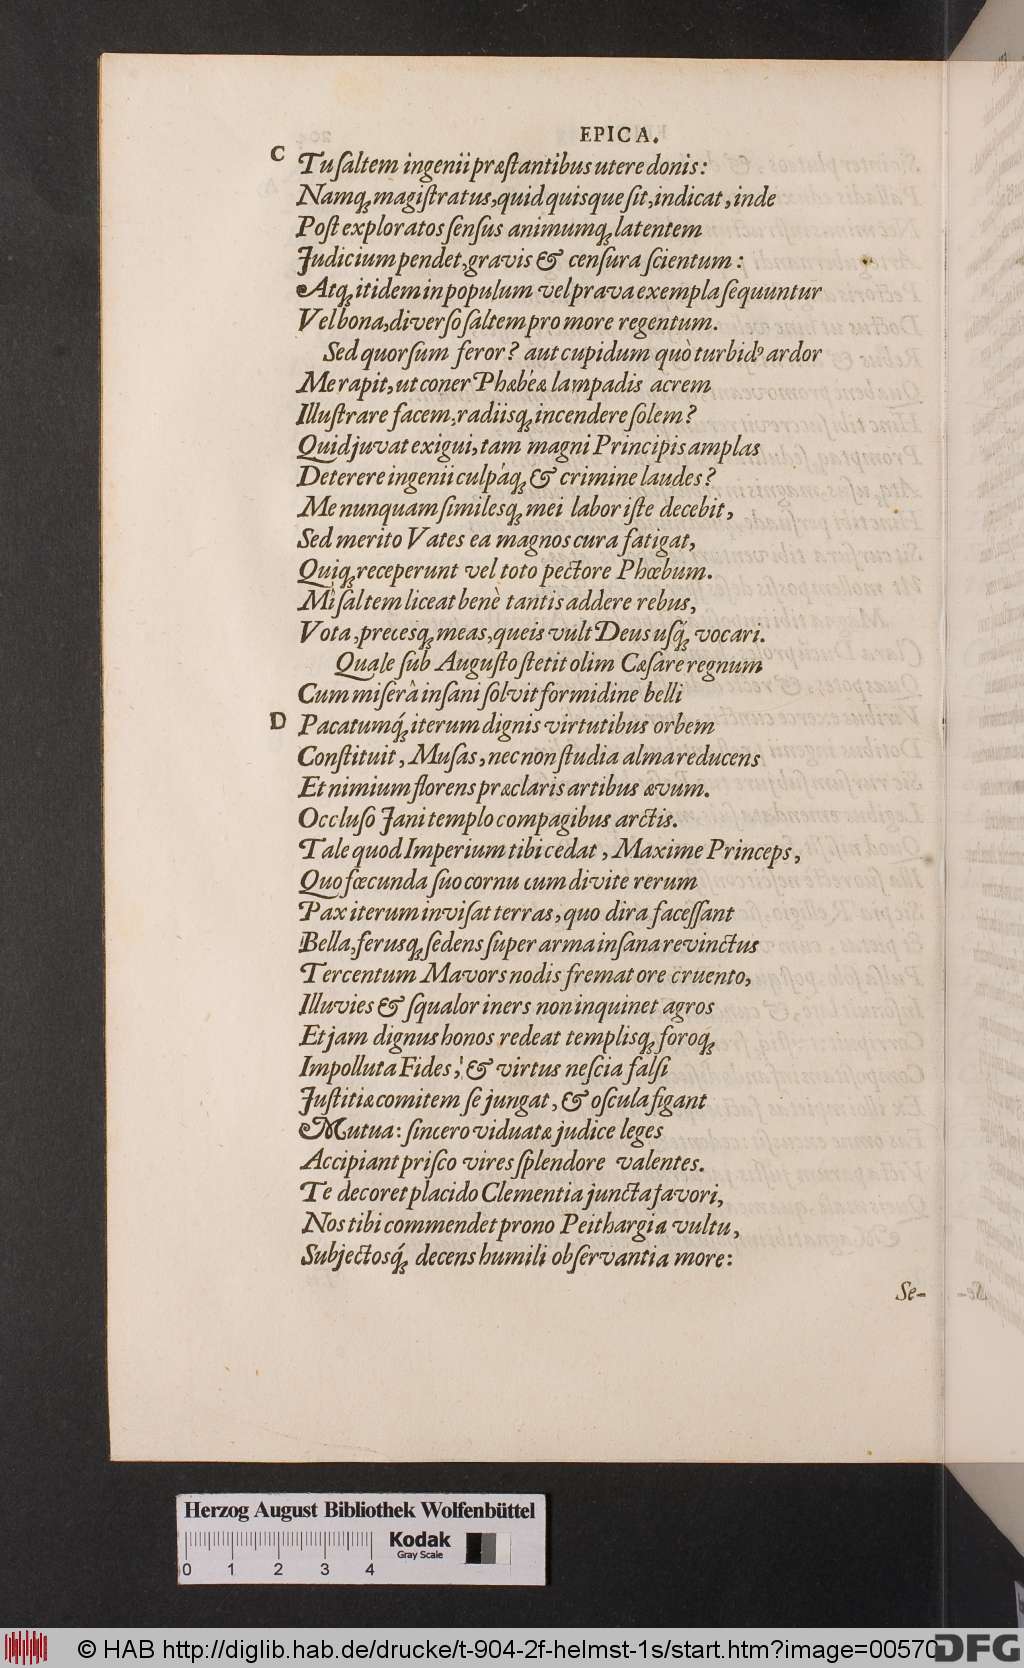 EPICA.
C
Tu ſaltem ingenii præſtantibus utere donis:
Namq; magiſtratus, quid quisque ſit, indicat, inde
Poſt exploratos ſenſus animumq; latentem
Judicium pendet, gravis & cenſura ſcientum:
Atq; itidem in populum vel prava exempla ſequuntur
Vel bona, diverſo ſaltem pro more regentum.
Sed quorſum feror? aut cupidum quò turbidꝰ ardor
Me rapit, ut coner Phæbéæ lampadis acrem
Illuſtrare facem, radiisq; incendere ſolem?
Quid juvat exigui, tam magni Principis amplas
Deterere ingenii culpáq; & crimine laudes?
Me nunquam ſimilesq; mei labor iſte decebit,
Sed merito Vates ea magnos cura fatigat,
Quiq; receperunt vel toto pectore Phœbum.
Mî ſaltem liceat benè tantis addere rebus,
Vota, precesq; meas, queis vult Deus uſq́; vocari.
Quale ſub Auguſto ſtetit olim Cæſare regnum
Cum miſerâ inſani ſolvit formidine belli
D
Pacatumq́; iterum dignis virtutibus orbem
Conſtituit, Muſas, nec non ſtudia alma reducens
Et nimium florens præclaris artibus ævum.
Occluſo Jani templo compagibus arctis.
Tale quod Imperium tibi cedat, Maxime Princeps,
Quo fœcunda ſuo cornu cum divite rerum
Pax iterum inviſat terras, quo dira faceſſant
Bella, ferusq; ſedens ſuper arma inſana revinctus
Tercentum Mavors nodis fremat ore cruento,
Illuvies & ſqualor iners non inquinet agros
Et jam dignus honos redeat templisq; foroq;
Impolluta Fides, & virtus neſcia falſi
Juſtitiæ comitem ſe jungat, & oſcula figant
Mutua: ſincero viduatæ judice leges
Accipiant priſco vires ſplendore valentes.
Te decoret placido Clementia juncta favori,
Nos tibi commendet prono Peithargia vultu,
Subjectosq́; decens humili obſervantia more:
Se-
Herzog August Bibliothek Wolfenbüttel
0 1 2 3 4
Kodak
Gray Scale
© HAB http://diglib.hab.de/drucke/t-904-2f-helmst-1s/start.htm?image=00570
DFG